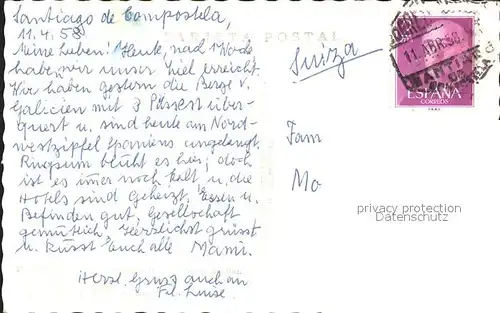 Santiago de Compostela,
11.4.58
TARJETA POSTAL
Meine Lieben! Heute, nach Wochen
haben wir unser Ziel erreicht.
Wir haben gestern die Berge v.
Galicien mit 3 Pässen über-
quert u. sind heute am Nord-
westzipfel Spaniens angelangt.
Ringsum blüht es hier; doch
ist es immer noch kalt u. die
Hotels sind geheizt. Essen u.
Befinden gut, Gesellschaft
gemütlich. Herzlichst grüsst
u. küsst Euch alle Mami.
Herzl. Gruss auch an
Frl. Luise.
Suiza
Fam
Mo
11 ABR. 58
ESPAÑA
CORREOS
privacy protection
Datenschutz